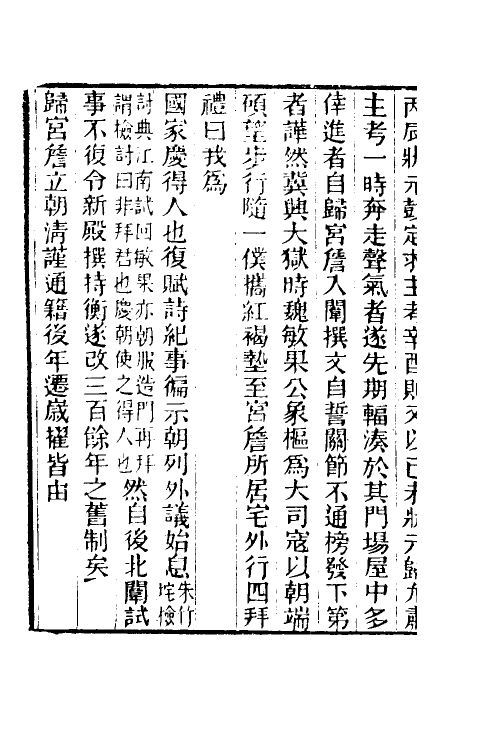 丙辰狀元彭定求主考辛酉則又以己未狀元歸允肅
主考一時奔走聲氣者遂先期輻湊於其門場屋中多
倖進者自歸宮詹入闈撰文自誓關節不通榜發下第
者譁然冀興大獄時魏敏果公象樞爲大司寇以朝端
碩望步行隨一僕攜紅褐墊至宮詹所居宅外行四拜
禮曰我爲
國家慶得人也復賦詩紀事徧示朝列外議始息朱竹垞檢
討典江南試回敏果亦朝服造門再拜謂檢討曰非拜君也慶朝使之得人也然自後北闈試
事不復令新殿撰持衡遂改三百餘年之舊制矣
歸宮詹立朝淸謹通籍後年遷歲擢皆由